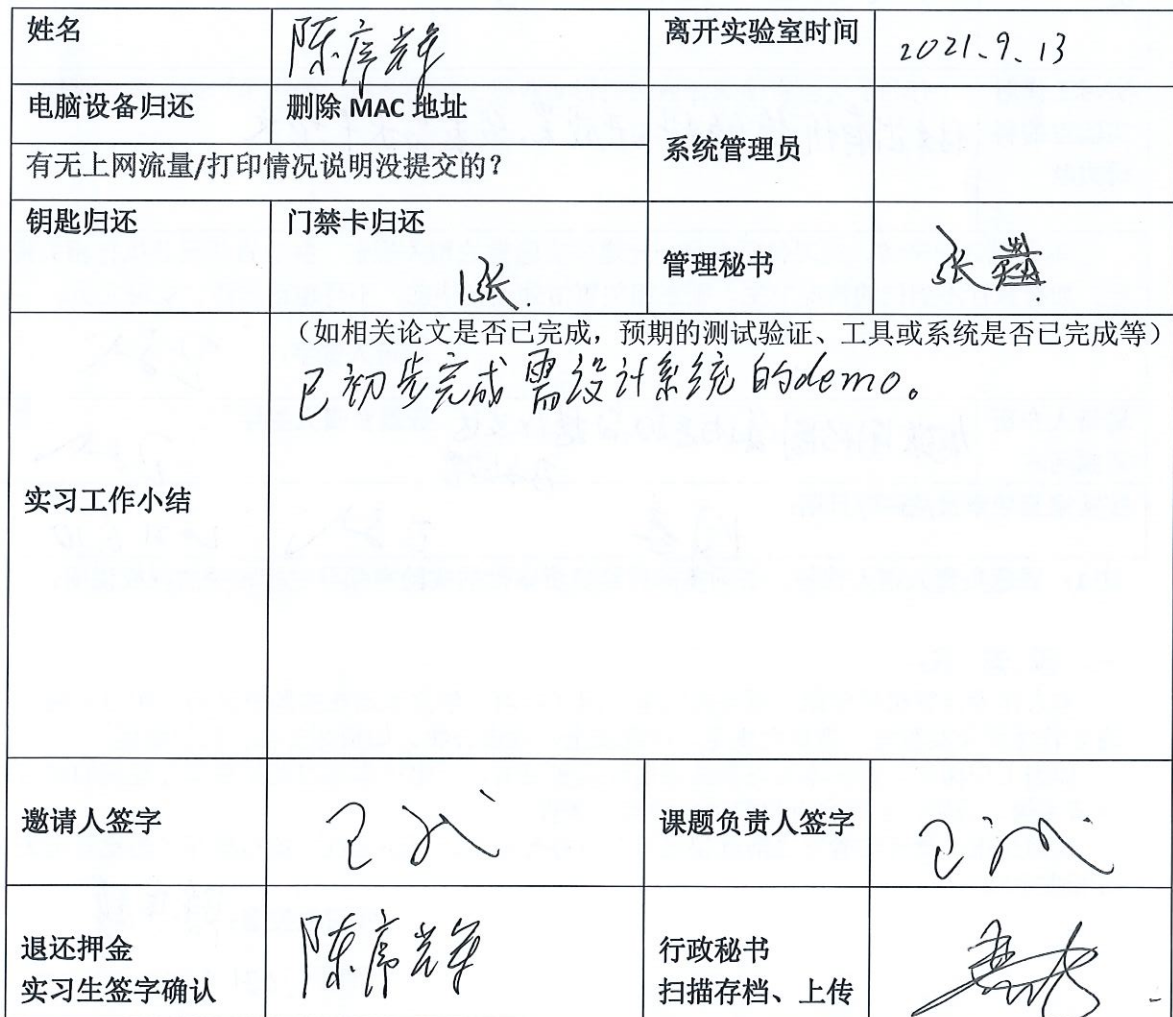 姓名 陈序辉 离开实验室时间 2021.9.13
电脑设备归还 删除 MAC 地址
系统管理员
有无上网流量/打印情况说明没提交的？
钥匙归还 门禁卡归还
1张. 管理秘书 张
（如相关论文是否已完成，预期的测试验证、工具或系统是否已完成等）
已初步完成需设计系统的demo。
实习工作小结
邀请人签字 课题负责人签字
退还押金 陈序辉 行政秘书
实习生签字确认 扫描存档、上传